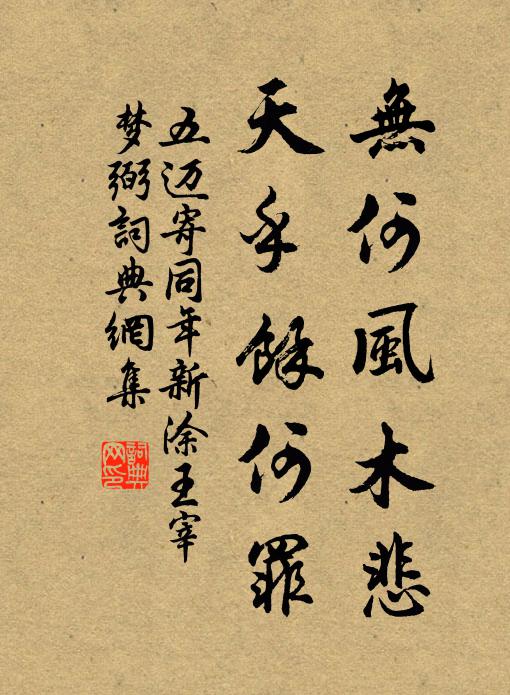 無何風木悲
天乎餘何罪
五迈寄同年新涂王宰
梦弼詞典網集
詞典
网印